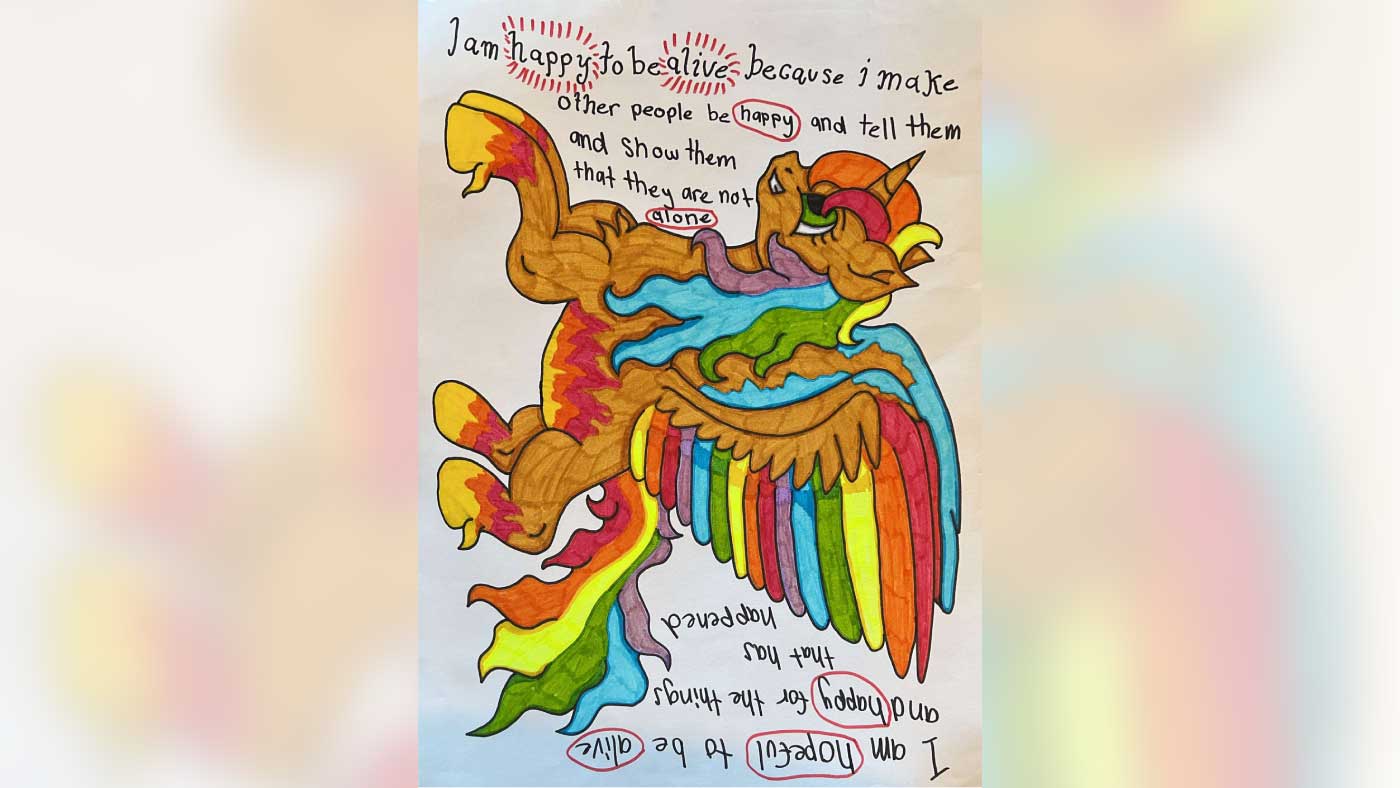 I am happy to be alive because i make
other people be happy and tell them
and show them
that they are not
alone
I am hopeful to be alive
and happy for the things
that has
happened